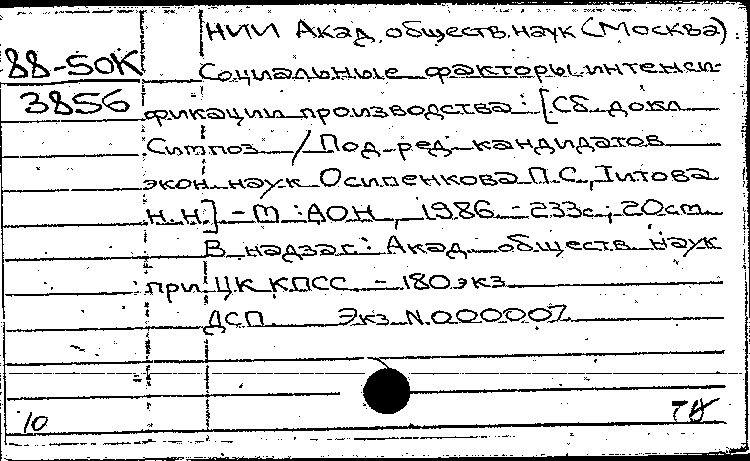 НИИ Акад. обществ. наук (Москва).
88-50К
Социальные факторы интенси-
3856
фикации производства: [Сб. докл.
Симпоз. / Под ред. кандидатов
экон. наук Осипенкова П.С., Титова
Н.Н.] - М.: АОН, 1986. - 233с.; 20см.
В надзаг.: Акад. обществ. наук
при ЦК КПСС. - 180 экз.
ДСП. Экз. N.000007.
10